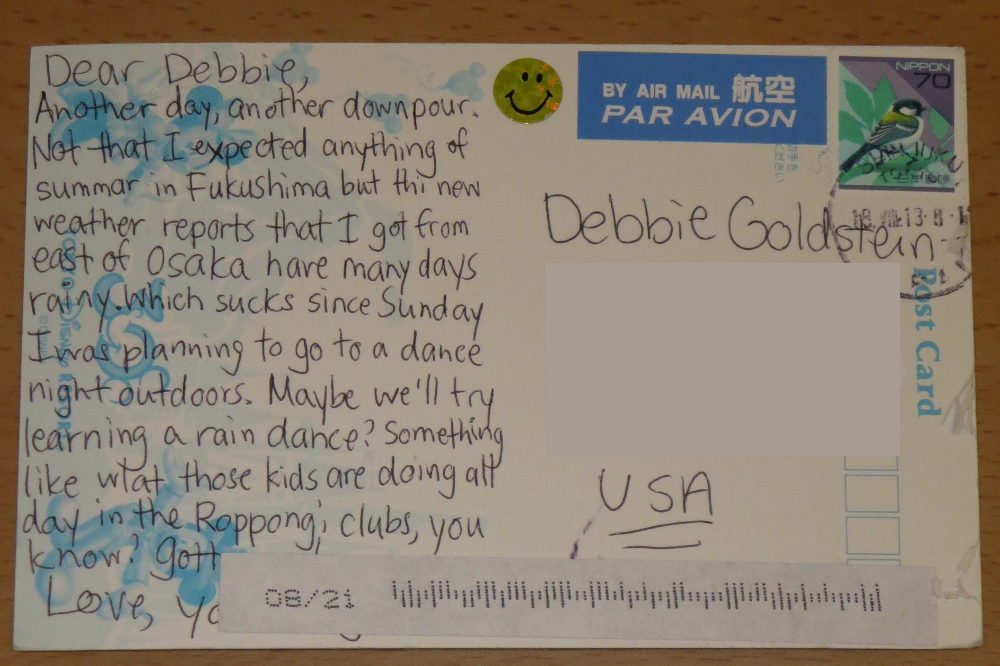 Dear Debbie,
Another day, another downpour.
Not that I expected anything of
summar in Fukushima but thi new
weather reports that I got from
east of Osaka have many days
rainy. Which sucks since Sunday
I was planning to go to a dance
night outdoors. Maybe we'll try
learning a rain dance? Something
like what those kids are doing all
day in the Roppongi clubs, you
know? Gott
Love, yo
BY AIR MAIL 航空
PAR AVION
NIPPON
70
Debbie Goldstein
USA
Post Card
08/21